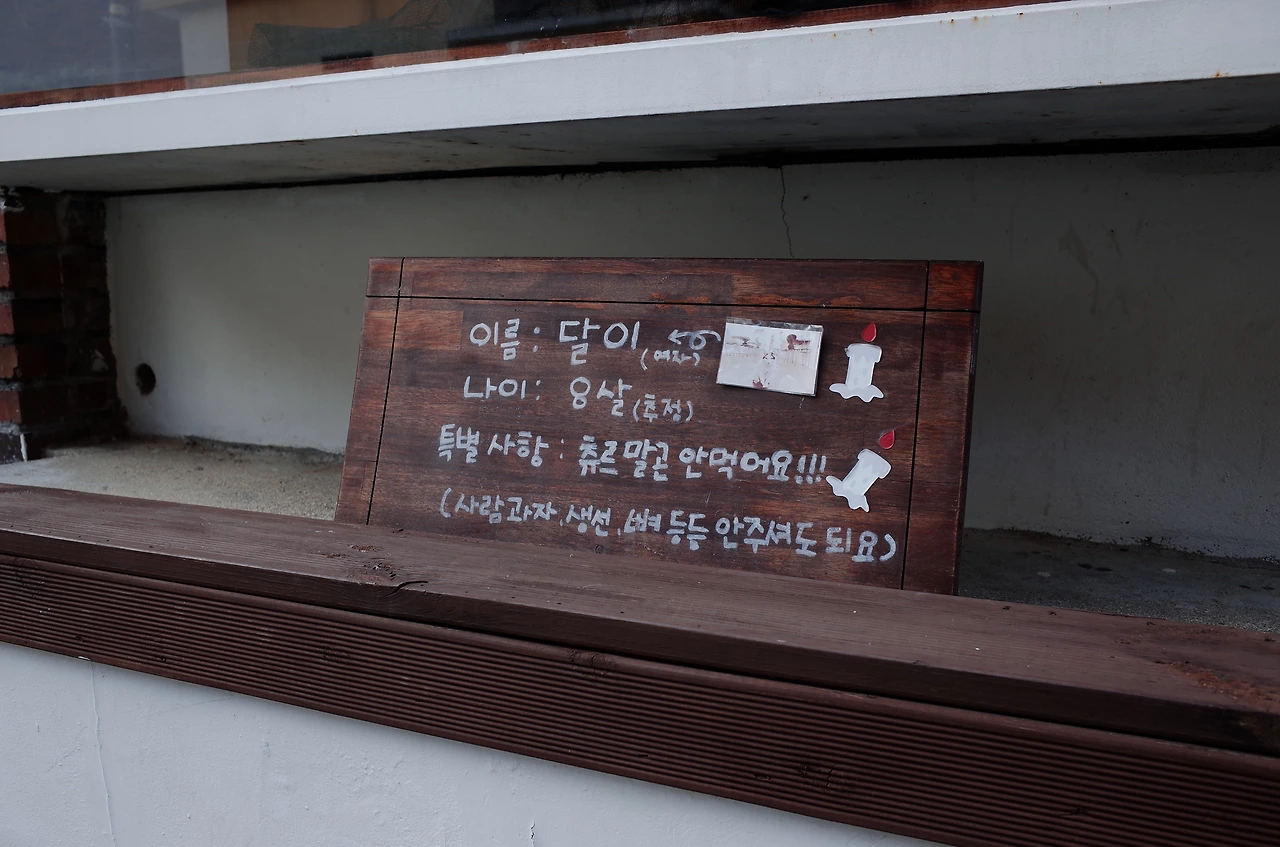 이름 : 달이 (여자)
나이 : 8살 (추정)
특별 사항 : 츄르 말곤 안먹어요!!!
(사람과자, 생선, 뼈 등등 안주셔도 되요)